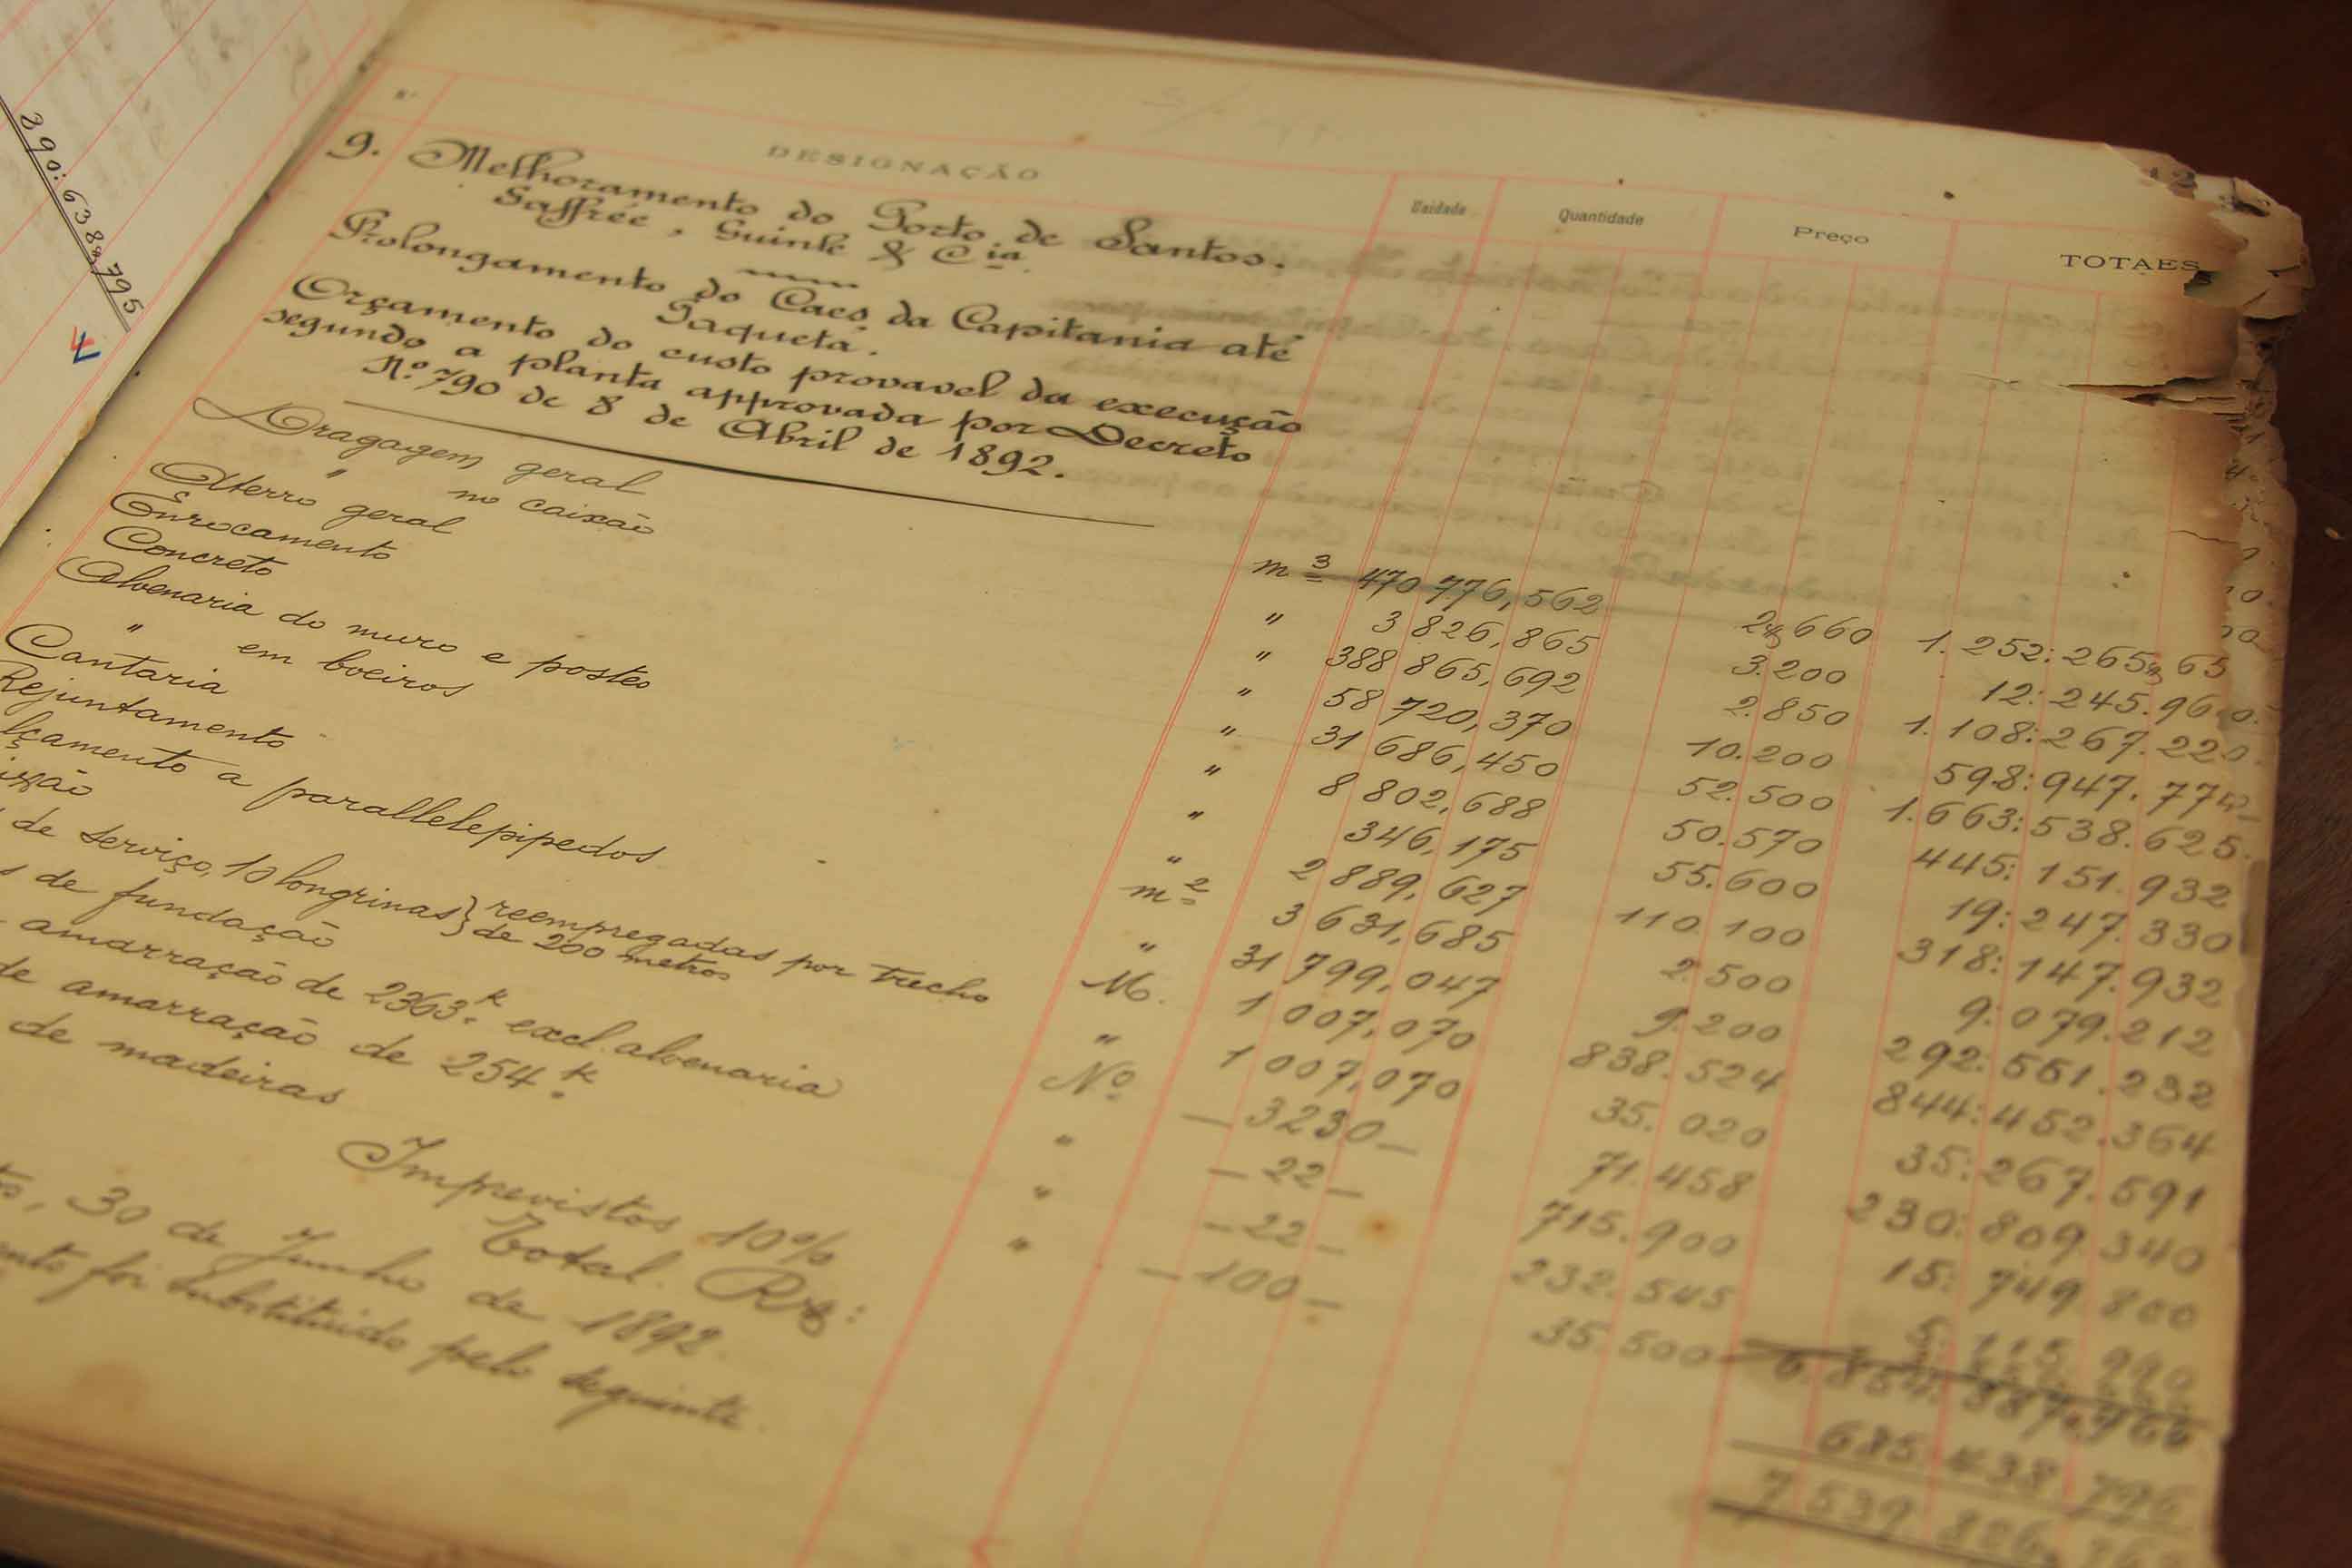 890:638$795
N.º
DESIGNAÇÃO
Unidade
Quantidade
Preço
TOTAES
9. Melhoramento do Porto de Santos.
Gaffrée, Guinle & Cia
Prolongamento do Caes da Capitania até
Paquetá.
Orçamento do custo provavel da execução
segundo a planta approvada por Decreto
N.º 790 de 8 de Abril de 1892.
Dragagem geral m3 470 776,562 2$660 1.252:265$65
" no caixão " 3 826,865 3.200 12:245.960
Aterro geral " 388 865,692 2.850 1.108:267.220
Enrocamento " 58 720,370 10.200 598:947.774
Concreto " 31 686,450 52.500 1.663:538.625
Alvenaria do muro e postes " 8 802,688 50.570 445:151.932
" em boeiros " 346,175 55.600 19:247.330
Cantaria " 2 889,627 110.100 318:147.932
Rejuntamento m2 3 631,685 2.500 9:079.212
lçamento a parallelepipedos " 31 799,047 9.200 292:551.232
ixão M. 1 007,070 838.524 844:452.364
de serviço, 10 longrinas } reempregadas por trecho de 200 metros " 1 007,070 35.020 35:267.591
s de fundação Nº 3230 71.458 230:809.340
amarração de 2363k excl. alvenaria " 22 715.900 15:749.800
de amarração de 254k " 22 232.545 5:115.990
de madeiras " 100 35.500
6.854:387.966
Imprevistos 10% 685.438.796
Total. Rs: 7 539 826
to, 30 de Junho de 1892
ento foi substituido pelo seguinte